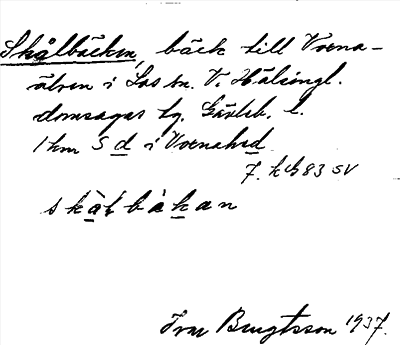 Skålbäcken, bäck till Voxna-
älven i Los sn. V. Hälsingl.
domsagas tg. Gävleb. l.
1 km S d i Voxnabrd
7. k 83 SV
skàlbàkan
Ivar Bengtsson 1937.